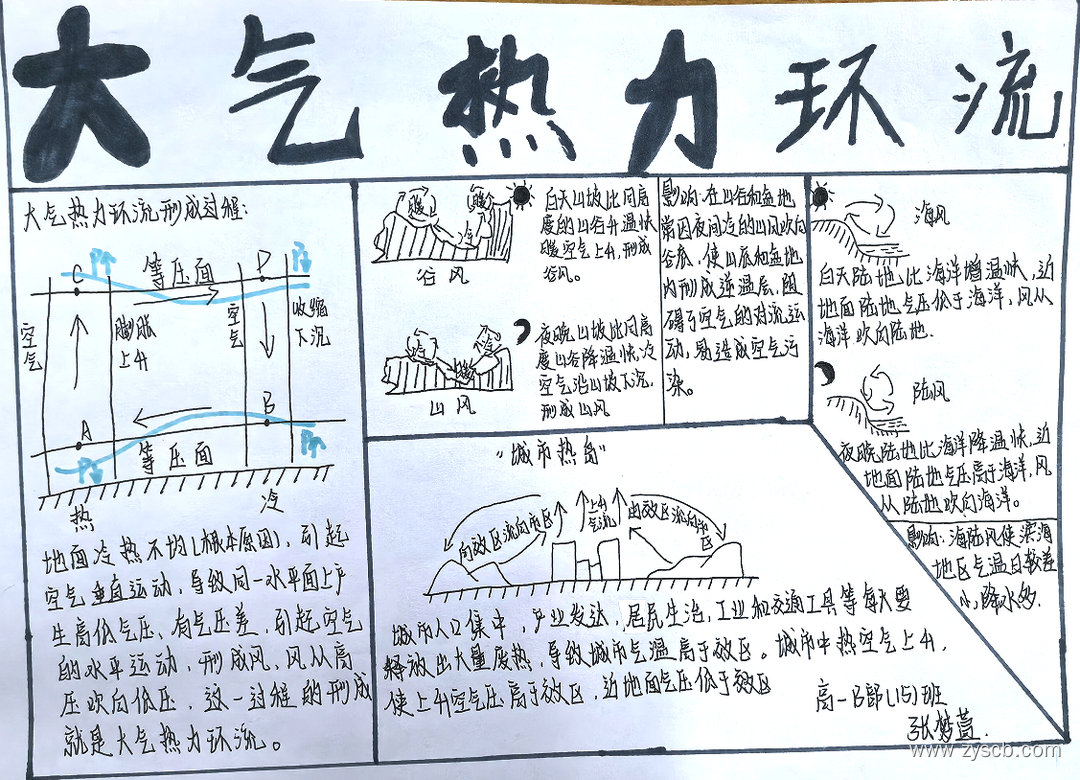 大气热力环流
大气热力环流形成过程:
P↑
P↓
C
等压面
D
空气
膨胀上升
空气
收缩下沉
A
B
P↓
等压面
P↑
热
冷
地面冷热不均(根本原因),引起
空气垂直运动,导致同一水平面上产
生高低气压,有气压差,引起空气
的水平运动,形成风,风从高
压吹向低压,这一过程的形成
就是大气热力环流。
暖
暖
冷
谷风
白天山坡比同高
度的山谷升温快
暖空气上升,形成
谷风。
冷
冷
暖
山风
夜晚山坡比同高
度山谷降温快,冷
空气沿山坡下沉,
形成山风
影响:在山谷和盆地
常因夜间冷的山风吹向
谷底,使山底和盆地
内形成逆温层,阻
碍了空气的对流运
动,易造成空气污
染。
海风
白天陆地比海洋增温快,近
地面陆地气压低于海洋,风从
海洋吹向陆地.
陆风
夜晚陆地比海洋降温快,近
地面陆地气压高于海洋,风
从陆地吹向海洋。
影响:海陆风使滨海
地区气温日较差
小,降水多.
"城市热岛"
上升
气流
城市人口集中,产业发达,居民生活,工业和交通工具等每天要
释放出大量废热,导致城市气温高于效区。城市中热空气上升,
使上升空气压高于效区,近地面气压低于效区
高一B部(15)班
张梦萱
www.zyscb.com